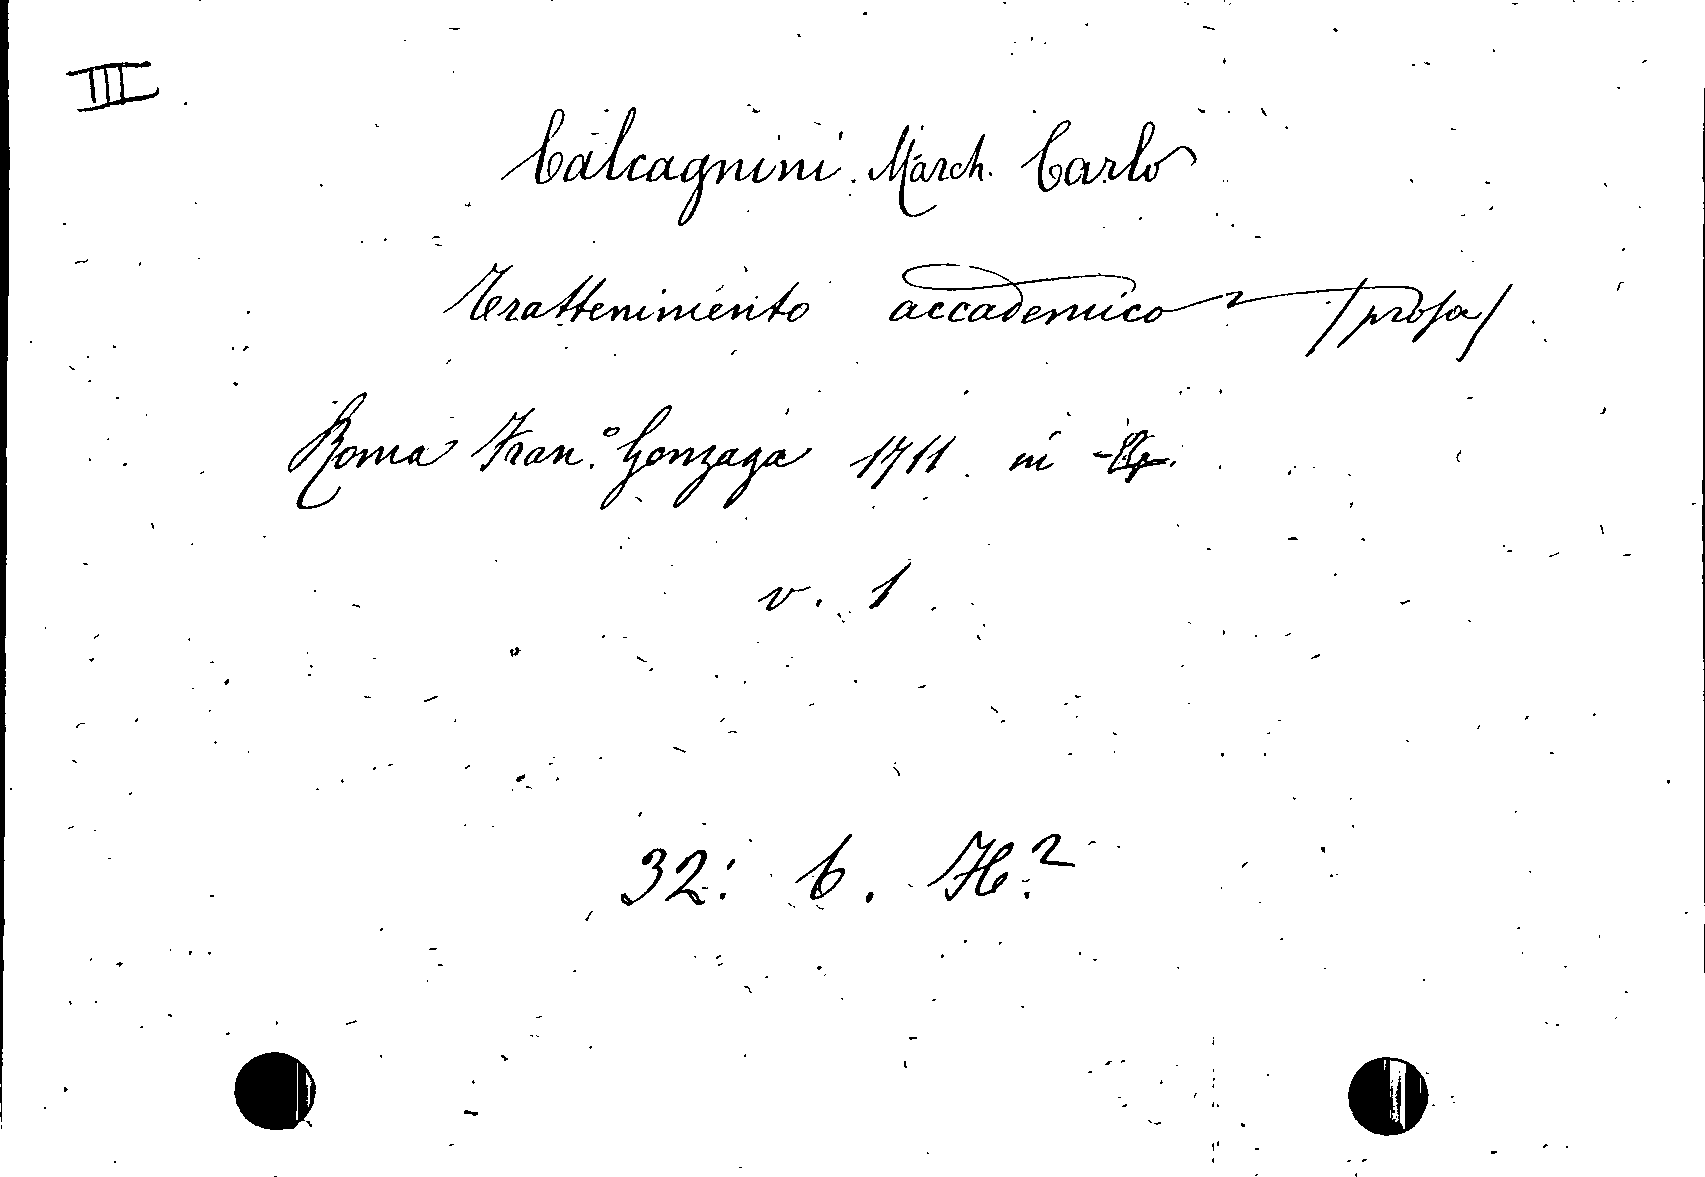 III
Calcagnini March. Carlo
Trattenimento accademico /prosa/
Roma Fran.º Gonzaga 1711 in
v. 1
32: 6. H.2